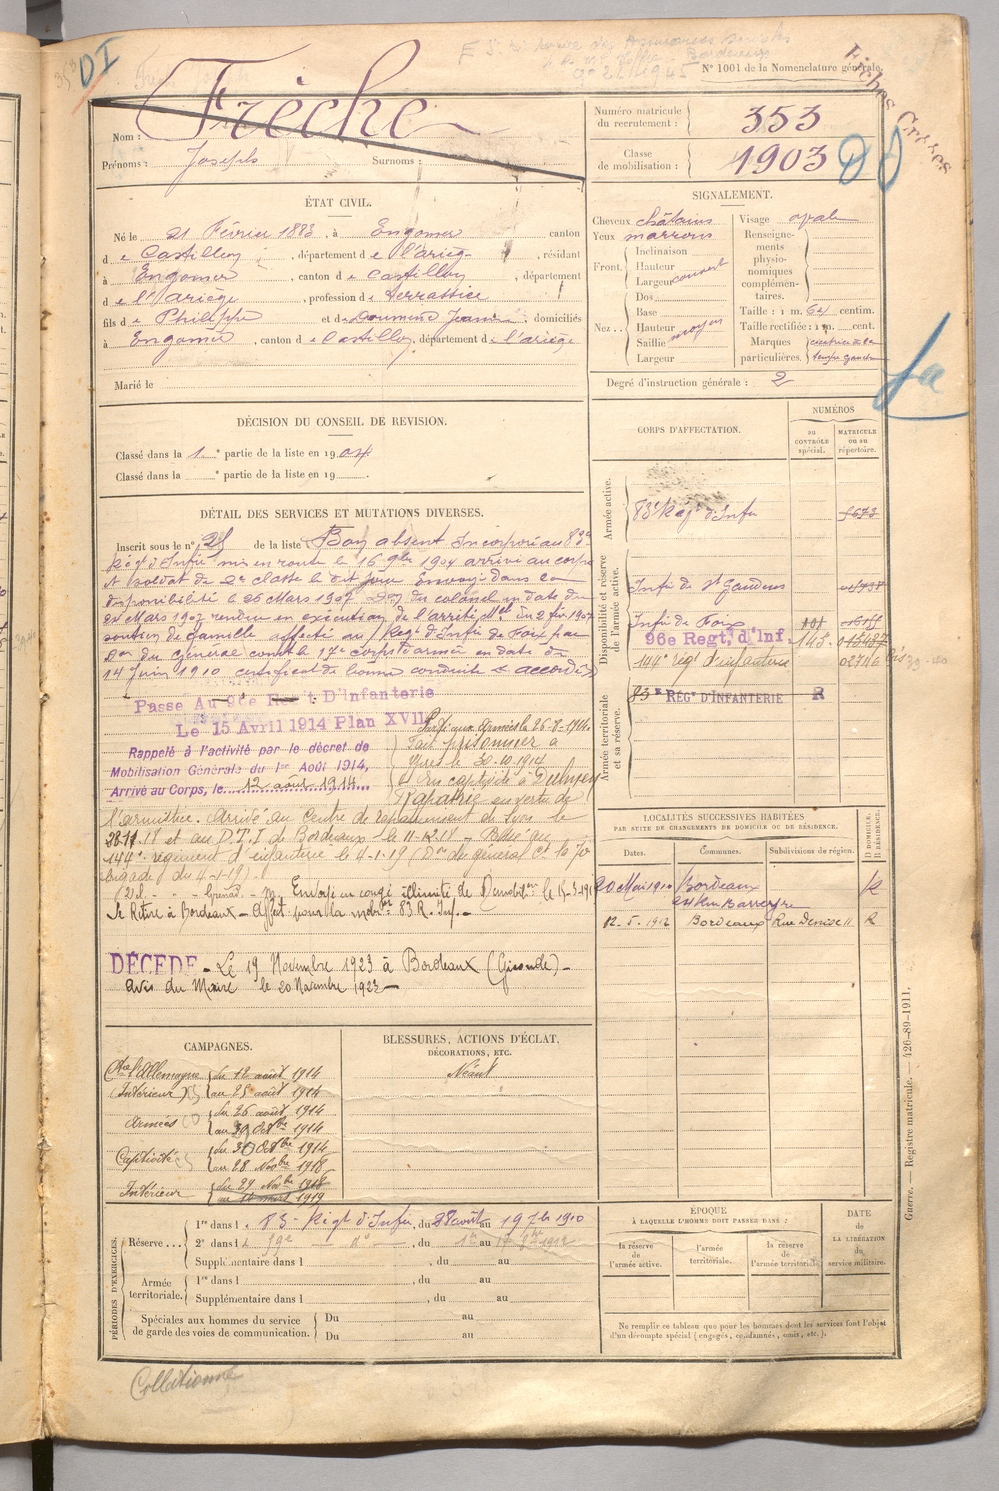 DI
353
Fiches Croisées
N° 1001 de la Nomenclature générale.
Nom : Frèche
Prénoms : Joseph Surnoms :
Numéro matricule du recrutement : 353
Classe de mobilisation : 1903
ÉTAT CIVIL.
Né le 21 Février 1883, à Engomer canton
de Castillon, département de l'ariège, résidant
à Engomer, canton de Castillon, département
de l'Ariège, profession de terrassier
fils de Philippe et de Doumenc Jeanne, domiciliés
à Engomer, canton de Castillon, département de l'ariège
Marié le
SIGNALEMENT.
Cheveux châtains
Yeux marrons
Front. Inclinaison
Hauteur
Largeur couvert
Nez. Dos
Base
Hauteur
Saillie moyen
Largeur
Visage ovale
Renseignements physionomiques complémentaires.
Taille : 1 m. 64 centim.
Taille rectifiée : 1 m. cent.
Marques particulières. cicatrice
tempe gauche
Degré d'instruction générale : 2
DÉCISION DU CONSEIL DE REVISION.
Classé dans la 1e partie de la liste en 1904
Classé dans la e partie de la liste en 19
DÉTAIL DES SERVICES ET MUTATIONS DIVERSES.
Inscrit sous le n° 28 de la liste Bon absent Incorporé au 83e
Régt d'Infie mis en route le 16 9bre 1904 arrivé au corps
et soldat de 2e classe le dit jour Envoyé dans la
disponibilité le 26 Mars 1907 Don du colonel en date du
24 Mars 1907 rendue en exécution de l'arrêté Mel du 2 fév 1907
soutien de famille affecté au Regt d'Infie de Foix par
Don du Général comt le 17e corps d'armée en date du
14 Juin 1910 certificat de bonne conduite "accordé"
Passe Au 96e Regt D'Infanterie
Le 15 Avril 1914 Plan XVII
Rappelé à l'activité par le décret de
Mobilisation Générale du 1er Août 1914,
Arrivé au Corps, le 12 août 1914
Parti aux armées le 26-8-1914.
Fait prisonnier à
Ypres le 30.10.1914
En captivité à Dulmen
Rapatrié en vertu de
l'armistice. Arrivé au Centre de rapatriement de Lyon le
28.11.18 et au D.T.I de Bordeaux le 11-12.18 - Passé au
144e régiment d'infanterie le 4-1-19 (On de général Ct la 70e
brigade du 4-1-19).
Envoyé en congé illimité de Démobilon le 15-3-19
Se Retire à Bordeaux - Affect. pour la mobon 83 R. Inf. -
DÉCÉDÉ - Le 19 Novembre 1923 à Bordeaux (Gironde) -
avis du Maire le 20 Novembre 1923 -
CORPS D'AFFECTATION.
NUMÉROS
au CONTRÔLE spécial.
MATRICULE ou au répertoire.
Armée active.
83e Régt d'Infie 5673
Disponibilité et réserve de l'armée active.
Infie de St Gaudens
Infie de Foix 101
96e Regt, d'Inf. 143
144e régt d'infanterie 02746 bis
Armée territoriale et sa réserve.
83e RÉGt D'INFANTERIE R
LOCALITÉS SUCCESSIVES HABITÉES
PAR SUITE DE CHANGEMENTS DE DOMICILE OU DE RÉSIDENCE.
Dates. Communes. Subdivisions de région. D DOMICILE. R RÉSIDENCE.
20 Mai 1910 Bordeaux R
24 Rue Barreyre
12-5-1912 Bordeaux Rue Denise 11 R
CAMPAGNES.
Ctre l'Allemagne
(Intérieur) du 12 août 1914
au 25 août 1914
Armées du 26 août 1914
au 29 8bre 1914
Captivité du 30 8bre 1914
au 28 Novbre 1918
Intérieur du 29 Novbre 1918
au 14 mars 1919
BLESSURES, ACTIONS D'ÉCLAT,
DÉCORATIONS, ETC.
Néant
PÉRIODES D'EXERCICES.
Réserve... 1re dans le 83e Régt d'Infie, du 28 août au 19 7bre 1910
2e dans le 59e do, du 1er au 17 1912
Supplémentaire dans l , du au
Armée territoriale. 1re dans l , du au
Supplémentaire dans l , du au
Spéciales aux hommes du service de garde des voies de communication. Du au
Du au
ÉPOQUE
À LAQUELLE L'HOMME DOIT PASSER DANS :
la réserve de l'armée active.
l'armée territoriale.
la réserve de l'armée territoriale.
DATE de LA LIBÉRATION du service militaire.
Ne remplir ce tableau que pour les hommes dont les services font l'objet
d'un décompte spécial (engagés, condamnés, omis, etc.).
Guerre. — Registre matricule. — 426-89-1911.
Collationné